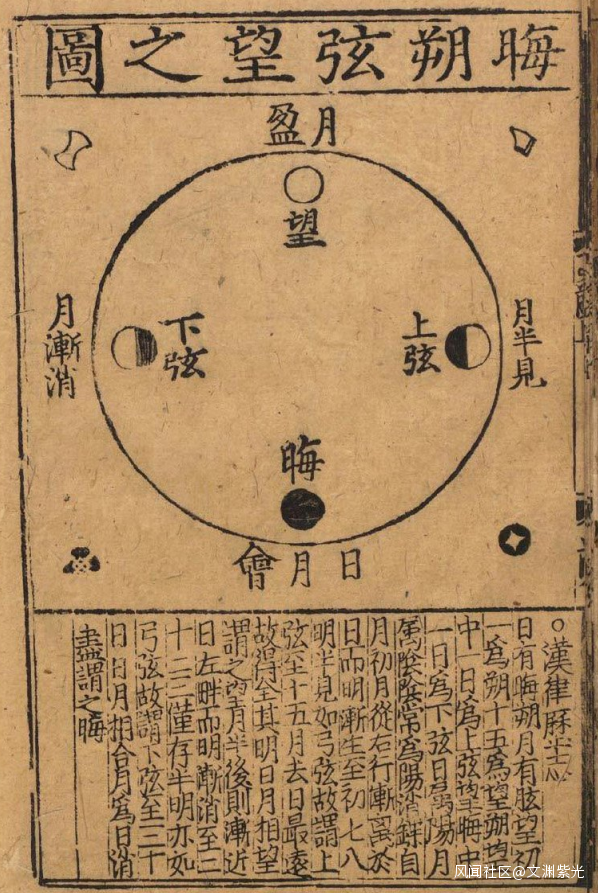 晦朔弦望之圖
月盈
望
上弦
月半見
下弦
月漸消
晦
日月會
○漢律厤志㕥
日有晦朔月有胘望初
一為朔十五為望朔望
中一日為上弦望晦中
一日為下弦日為陽月
屬陰陰常為陽消鑠自
月初月從右行漸离於
日而明漸生至初七八
明半見如弓弦故謂上
弦至十五月去日最遠
故得全其明日月相望
謂之望月半後則漸近
日左畔而明漸消至二
十二三僅存半明亦如
弓弦故謂下弦至三十
日日月相合月為日消
盡謂之晦
风闻社区@文渊紫光